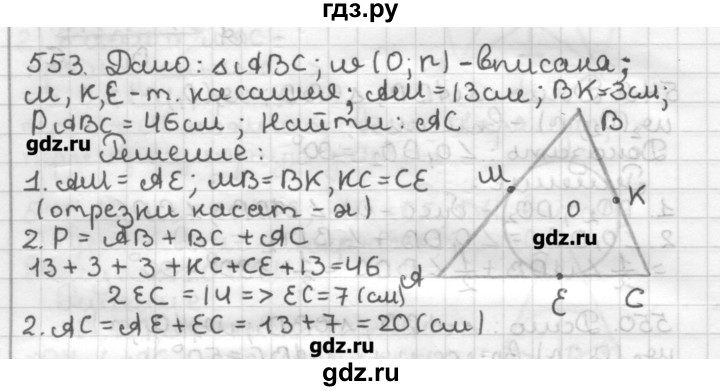 гдз.ру
553. Дано: △ABC; w(O; r) - вписана;
M, K, E - т. касания; AM = 13см; BK = 3см;
P ABC = 46см; Найти: AC
gdz.ru
Решение:
1. AM = AE; MB = BK, KC = CE
(отрезки касат-х)
2. P = AB + BC + AC
13 + 3 + 3 + KC + CE + 13 = 46
2EC = 14 => EC = 7 (см)
2. AC = AE + EC = 13 + 7 = 20 (см)
B
M
K
O
gdz.ru
A
E
C
gdz.ru
gdz.ru